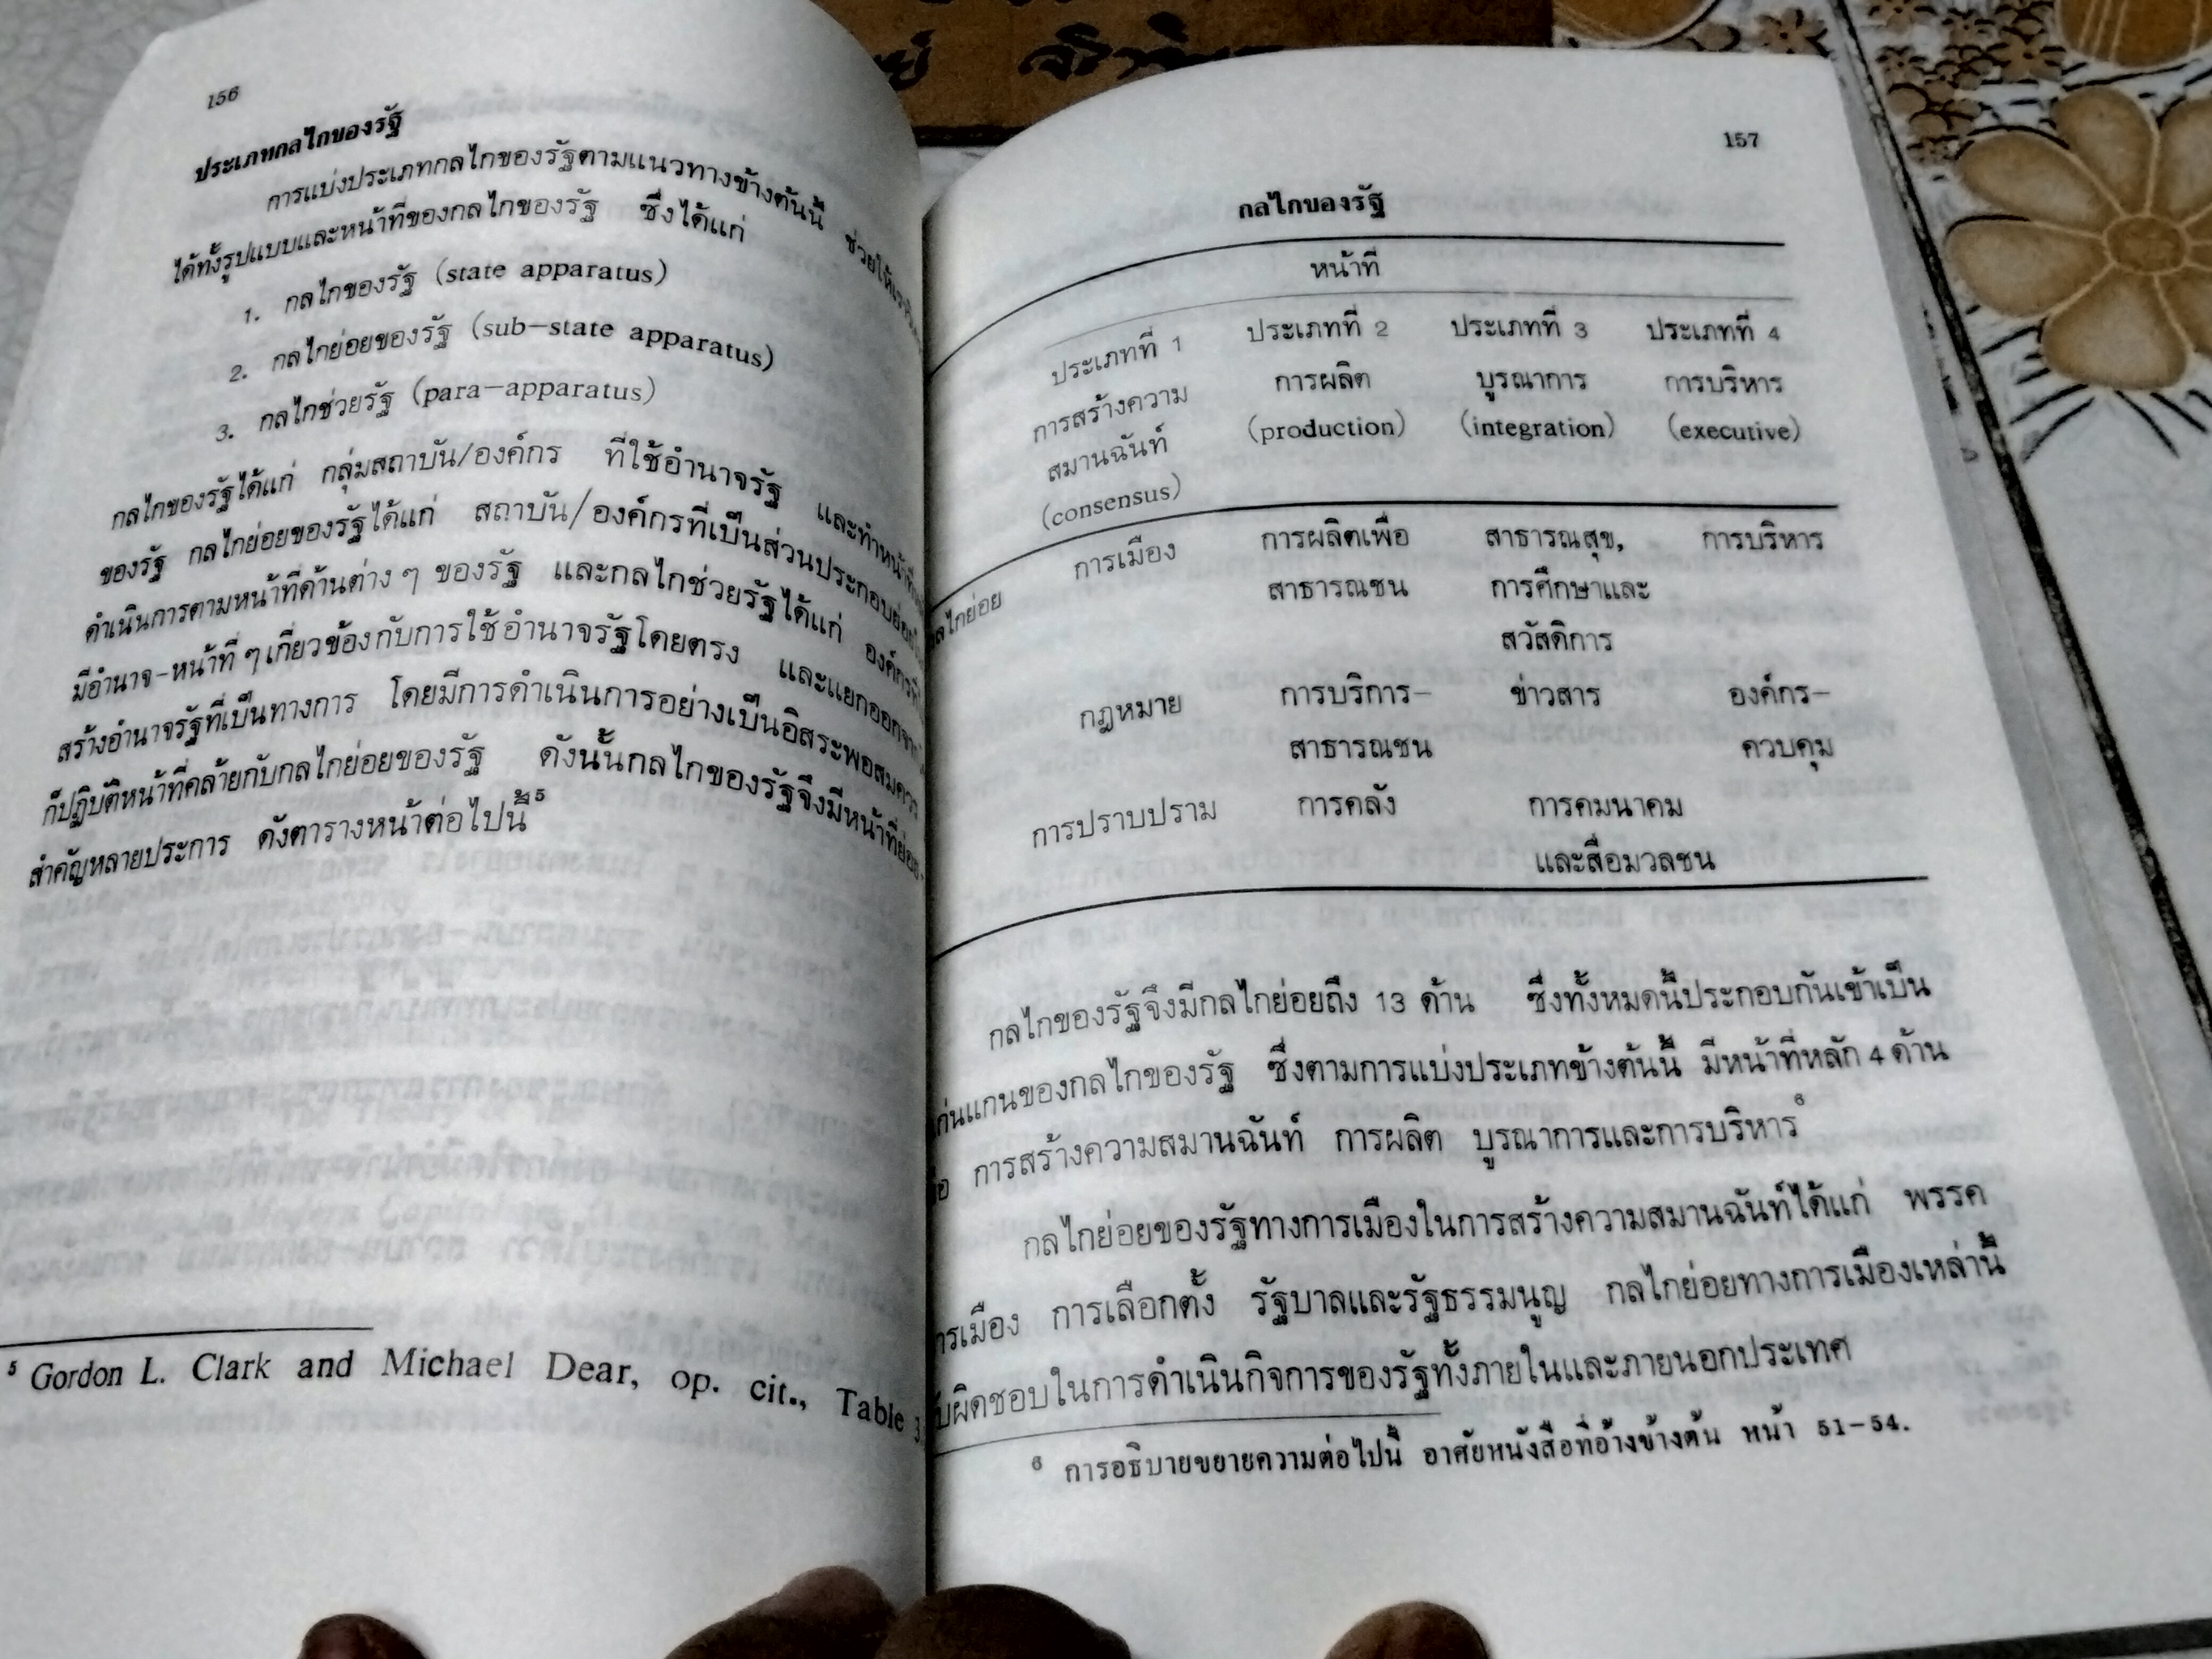 156
ประเภทกลไกของรัฐ
การแบ่งประเภทกลไกของรัฐตามแนวทางข้างต้นนี้ ช่วยให้
ได้ทั้งรูปแบบและหน้าที่ของกลไกของรัฐ ซึ่งได้แก่
1. กลไกของรัฐ (state apparatus)
2. กลไกย่อยของรัฐ (sub-state apparatus)
3. กลไกช่วยรัฐ (para-apparatus)
กลไกของรัฐได้แก่ กลุ่มสถาบัน/องค์กร ที่ใช้อำนาจรัฐ และทำหน้าที่
ของรัฐ กลไกย่อยของรัฐได้แก่ สถาบัน/องค์กรที่เป็นส่วนประกอบย่อย
ดำเนินการตามหน้าที่ด้านต่าง ๆ ของรัฐ และกลไกช่วยรัฐได้แก่ องค์กรที่
มีอำนาจ-หน้าที่ ๆ เกี่ยวข้องกับการใช้อำนาจรัฐโดยตรง และแยกออกจาก
สร้างอำนาจรัฐที่เป็นทางการ โดยมีการดำเนินการอย่างเป็นอิสระพอสมควร
ก็ปฏิบัติหน้าที่คล้ายกับกลไกย่อยของรัฐ ดังนั้นกลไกของรัฐจึงมีหน้าที่ย่อย
สำคัญหลายประการ ดังตารางหน้าต่อไปนี้5
5 Gordon L. Clark and Michael Dear, op. cit., Table 3
157
กลไกของรัฐ
หน้าที่
ประเภทที่ 1 ประเภทที่ 2 ประเภทที่ 3 ประเภทที่ 4
การสร้างความ การผลิต บูรณาการ การบริหาร
สมานฉันท์ (production) (integration) (executive)
(consensus)
การเมือง การผลิตเพื่อ สาธารณสุข, การบริหาร
กลไกย่อย สาธารณชน การศึกษาและ
สวัสดิการ
กฎหมาย การบริการ- ข่าวสาร องค์กร-
สาธารณชน ควบคุม
การปราบปราม การคลัง การคมนาคม
และสื่อมวลชน
กลไกของรัฐจึงมีกลไกย่อยถึง 13 ด้าน ซึ่งทั้งหมดนี้ประกอบกันเข้าเป็น
แก่นแกนของกลไกของรัฐ ซึ่งตามการแบ่งประเภทข้างต้นนี้ มีหน้าที่หลัก 4 ด้าน
คือ การสร้างความสมานฉันท์ การผลิต บูรณาการและการบริหาร6
กลไกย่อยของรัฐทางการเมืองในการสร้างความสมานฉันท์ได้แก่ พรรค
การเมือง การเลือกตั้ง รัฐบาลและรัฐธรรมนูญ กลไกย่อยทางการเมืองเหล่านี้
รับผิดชอบในการดำเนินกิจการของรัฐทั้งภายในและภายนอกประเทศ
6 การอธิบายขยายความต่อไปนี้ อาศัยหนังสือที่อ้างข้างต้น หน้า 51-54.